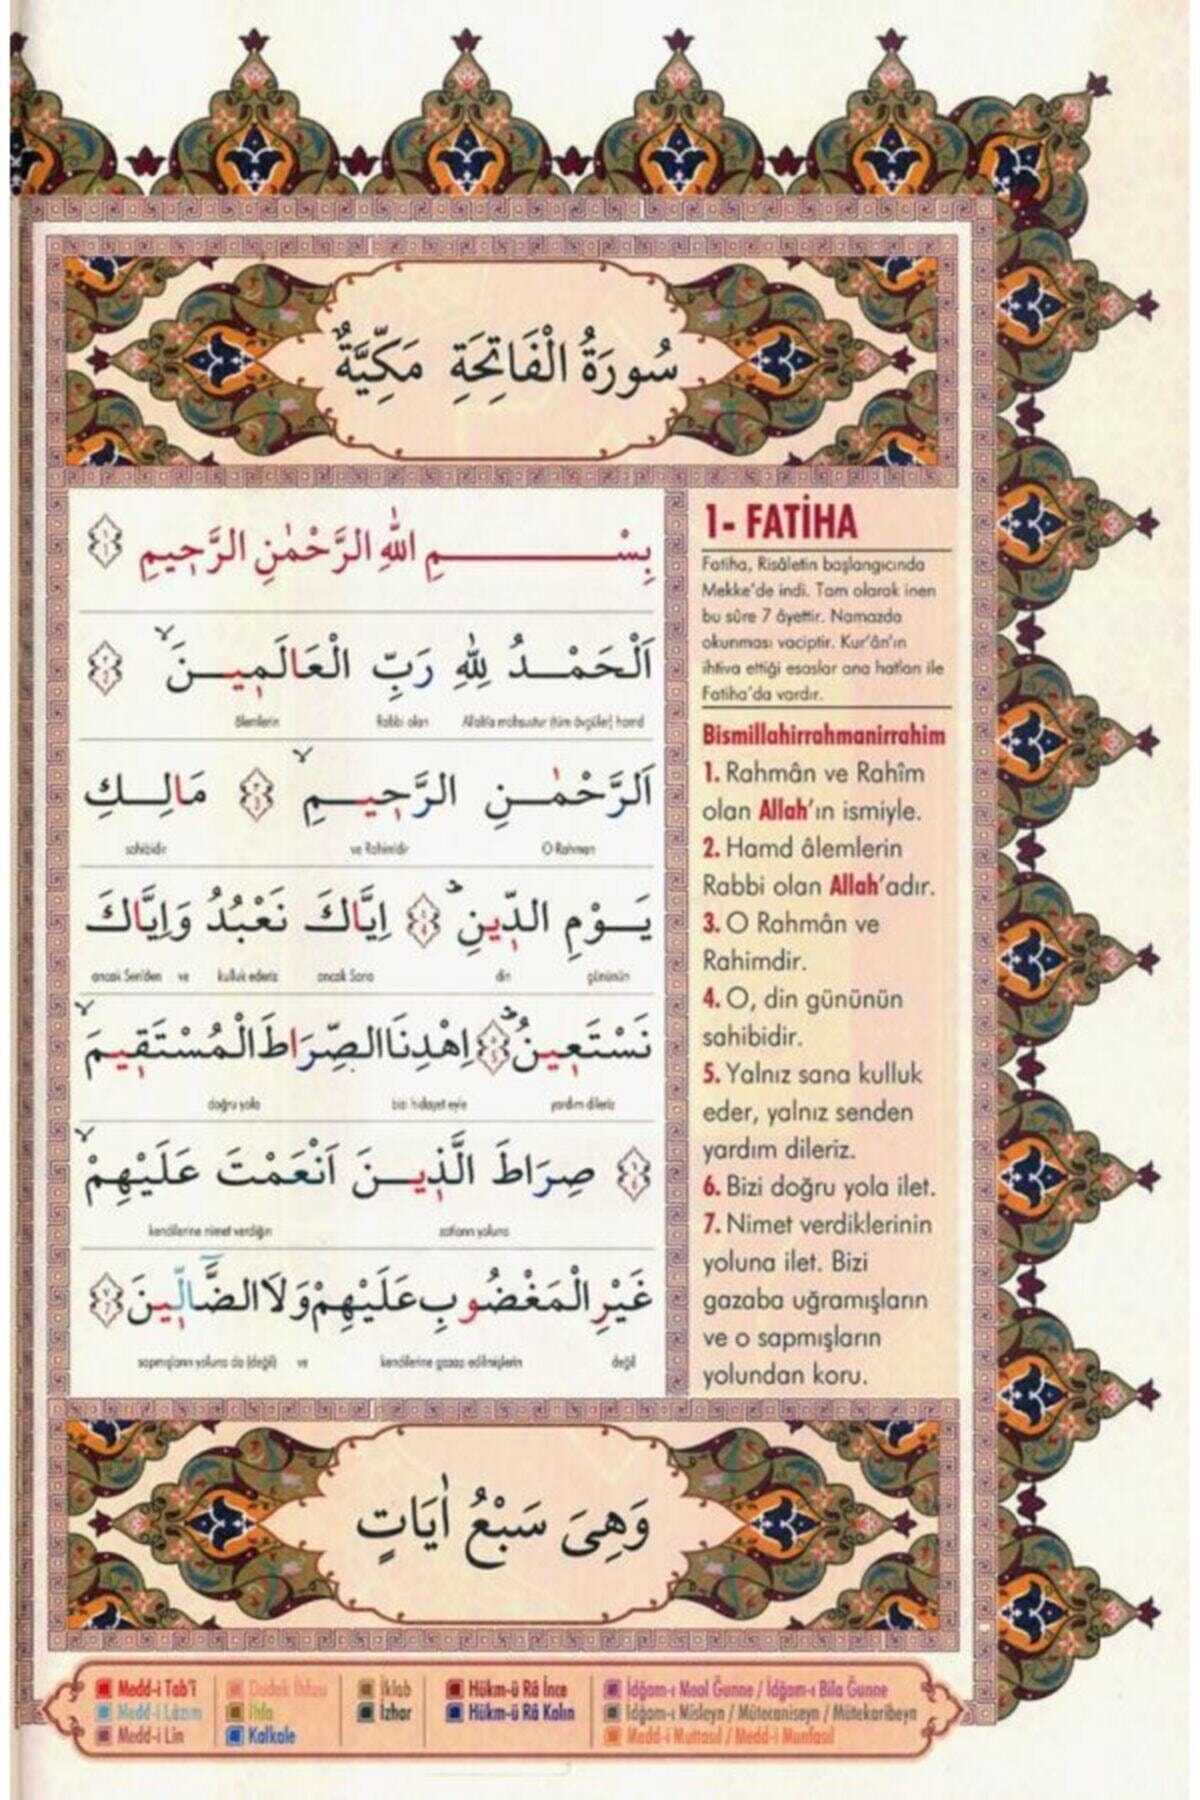 سُورَةُ الْفَاتِحَةِ مَكِّيَّةٌ
بِسْمِ اللّٰهِ الرَّحْمٰنِ الرَّحِيمِ ﴿١﴾
اَلْحَمْدُ لِلّٰهِ رَبِّ الْعَالَمِينَۙ ﴿٢﴾
Allah'a mahsustur (tüm övgüler) hamd
Rabbi olan
âlemlerin
اَلرَّحْمٰنِ الرَّحِيمِۙ ﴿٣﴾ مَالِكِ
O Rahman
ve Rahimdir
sahibidir
يَوْمِ الدِّينِۜ ﴿٤﴾ اِيَّاكَ نَعْبُدُ وَاِيَّاكَ
gününün
din
ancak Sana
kulluk ederiz
ve
ancak Sen'den
نَسْتَعِينُۜ ﴿٥﴾ اِهْدِنَا الصِّرَاطَ الْمُسْتَقِيمَۙ
yardım dileriz
bizi hidayet eyle
doğru yola
﴿٦﴾ صِرَاطَ الَّذِينَ اَنْعَمْتَ عَلَيْهِمْۙ
zatların yoluna
kendilerine nimet verdiğin
غَيْرِ الْمَغْضُوبِ عَلَيْهِمْ وَلَا الضَّٓالِّينَ ﴿٧﴾
değil
kendilerine gazap edilmişlerin
ve
sapmışların yoluna da (değil)
1- FATİHA
Fatiha, Risâletin başlangıcında
Mekke'de indi. Tam olarak inen
bu sûre 7 âyettir. Namazda
okunması vaciptir. Kur'ân'ın
ihtiva ettiği esaslar ana hatları ile
Fatiha'da vardır.
Bismillahirrahmanirrahim
1. Rahmân ve Rahîm
olan Allah'ın ismiyle.
2. Hamd âlemlerin
Rabbi olan Allah'adır.
3. O Rahmân ve
Rahimdir.
4. O, din gününün
sahibidir.
5. Yalnız sana kulluk
eder, yalnız senden
yardım dileriz.
6. Bizi doğru yola ilet.
7. Nimet verdiklerinin
yoluna ilet. Bizi
gazaba uğramışların
ve o sapmışların
yolundan koru.
وَهِىَ سَبْعُ اٰيَاتٍ
Medd-i Tab'î
Medd-i Lâzım
Medd-i Lîn
Dudak İhfası
İhfa
Kalkale
İklab
İzhar
Hükm-ü Râ İnce
Hükm-ü Râ Kalın
İdğam-ı Meal Ğunne / İdğam-ı Bila Ğunne
İdğam-ı Misleyn / Mütecaniseyn / Mütekaribeyn
Medd-i Muttasıl / Medd-i Munfasıl